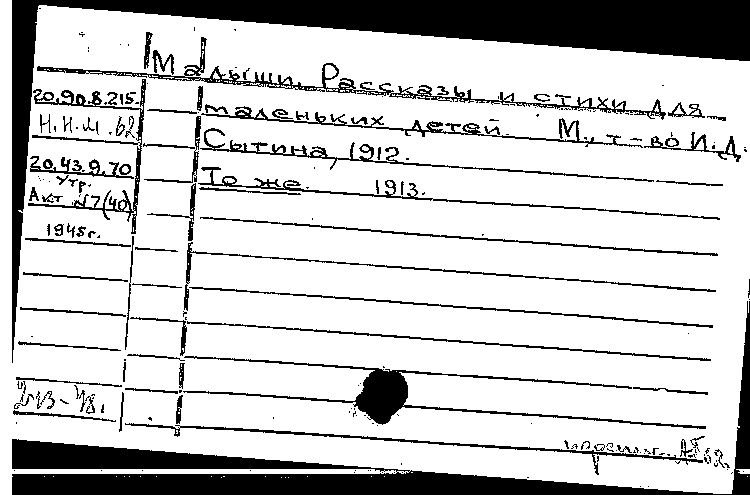 Малыши. Рассказы и стихи для
маленьких детей. М., т-во И.Д.
Сытина, 1912.
То же 1913.
20.90.8.215.
Н.Н.М. 62
20.43.9.70
Утр.
Акт №7(40)
1945г.